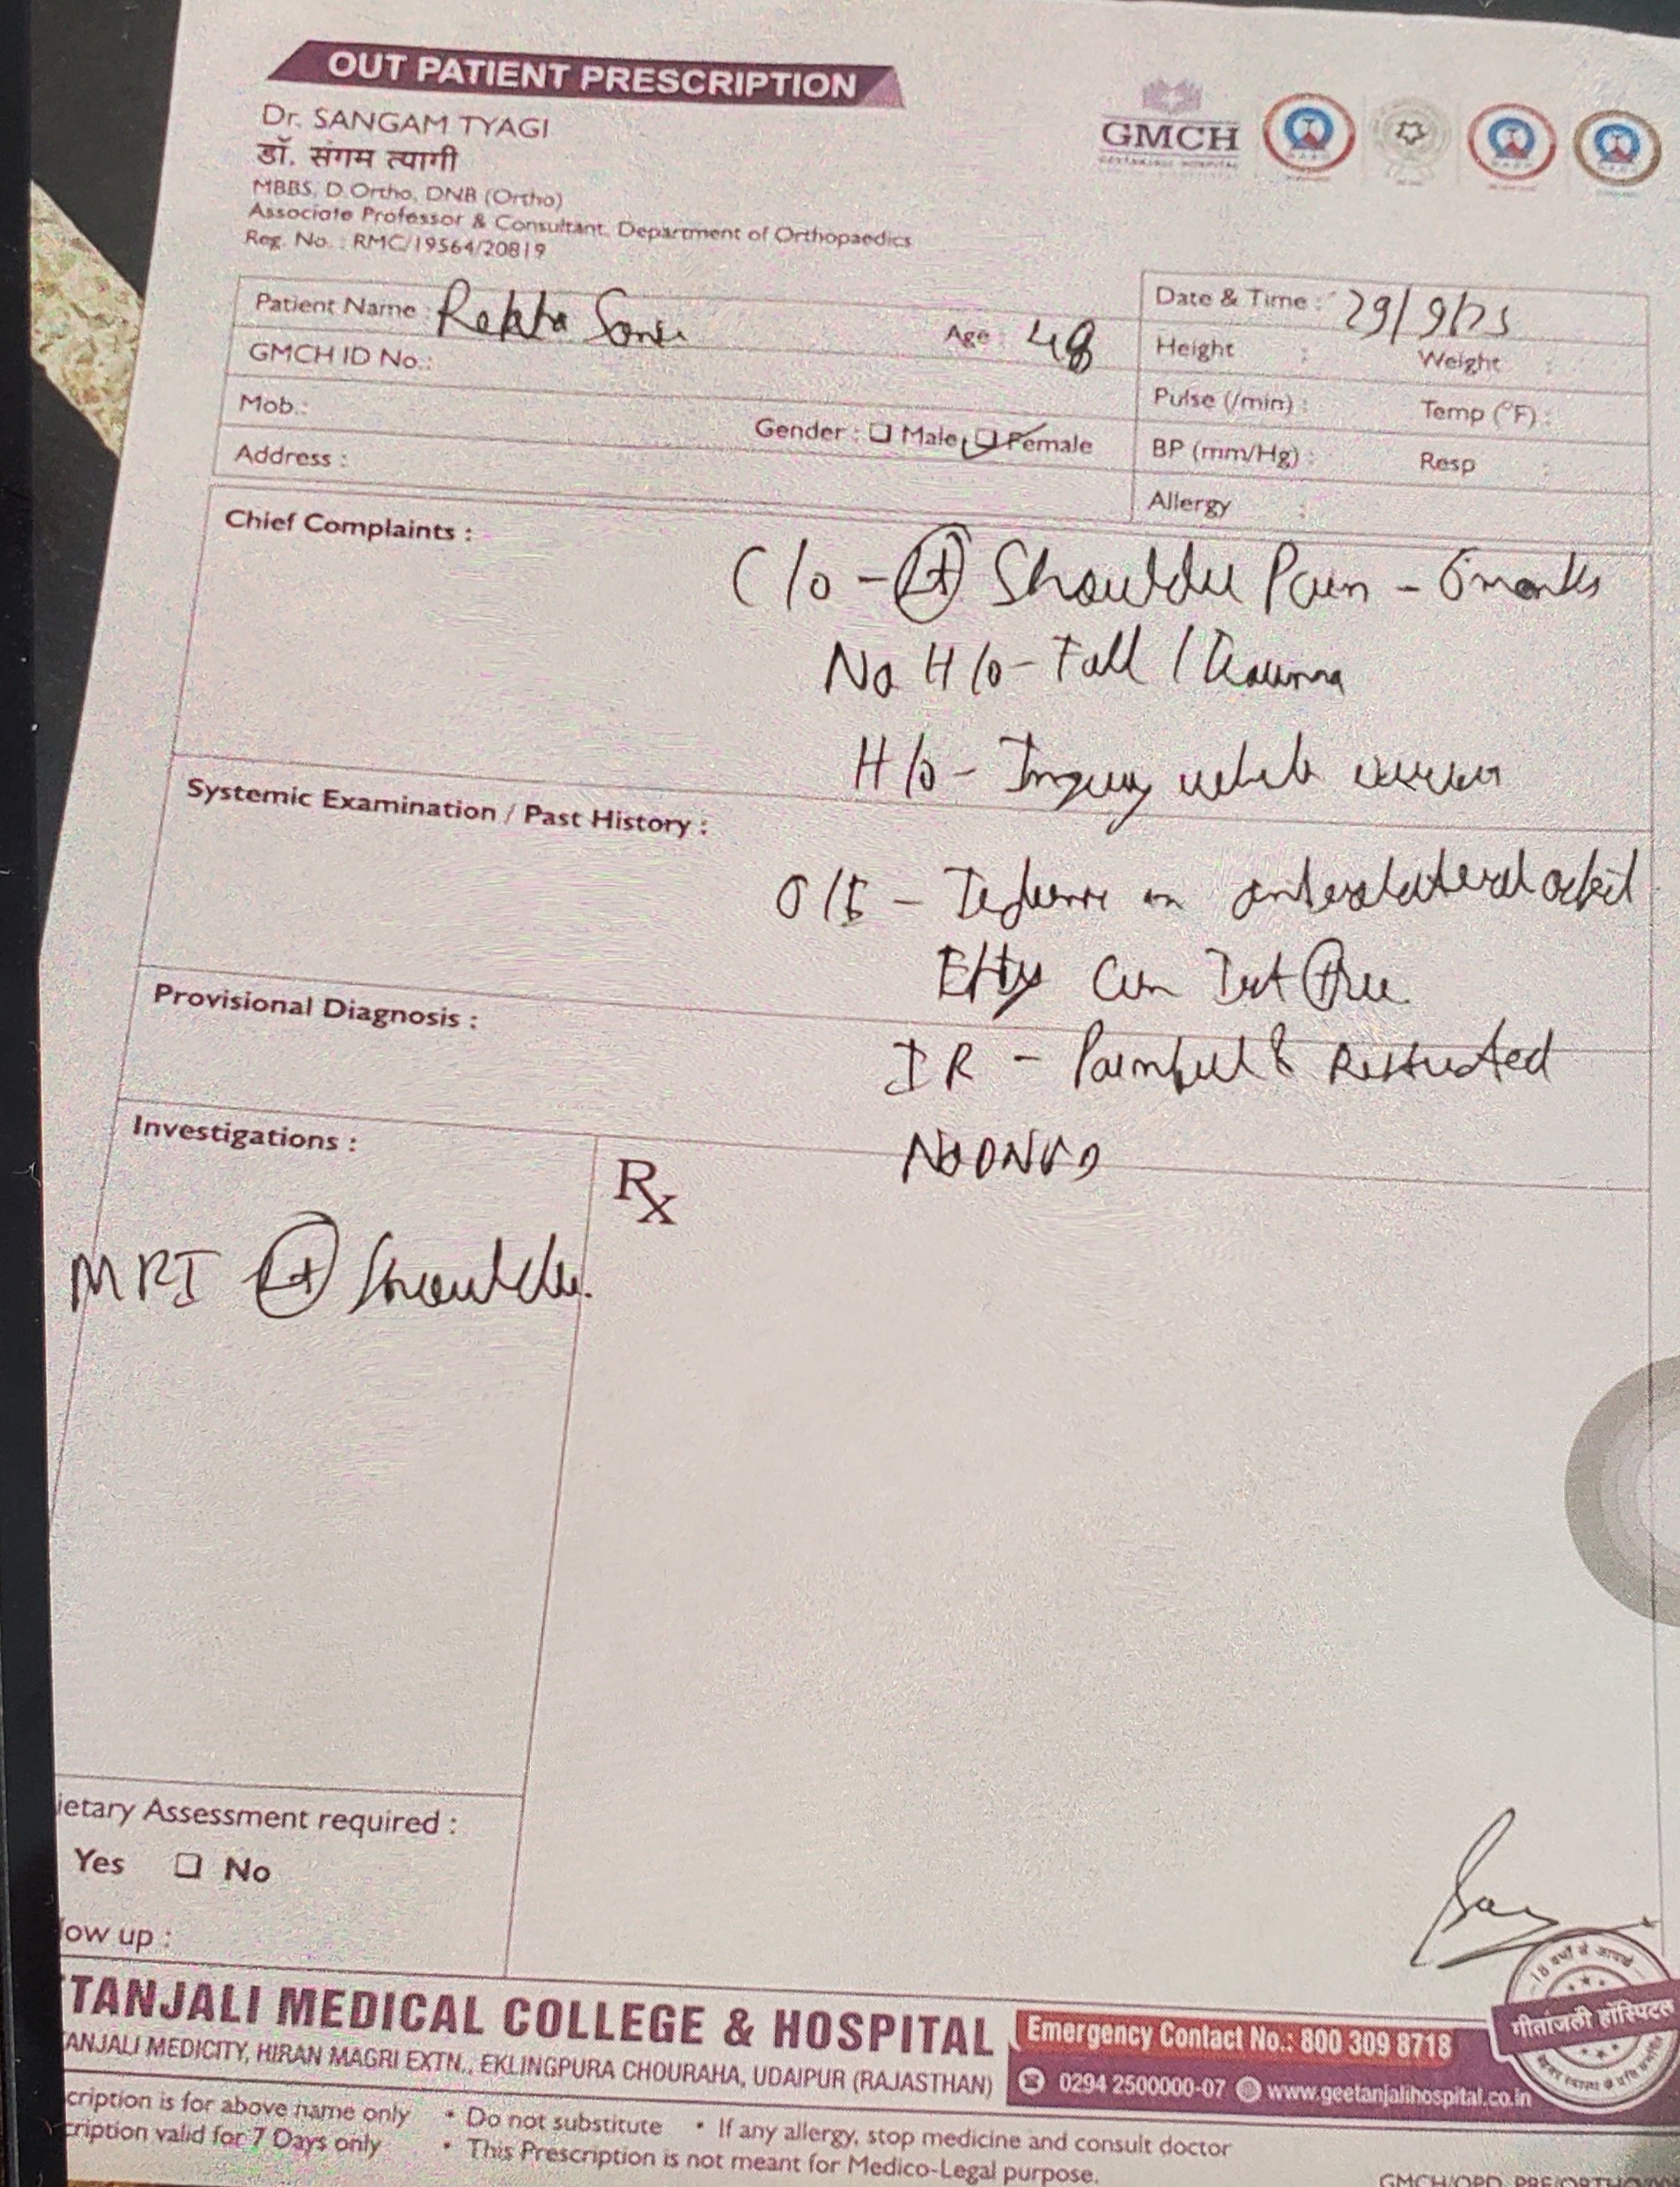 OUT PATIENT PRESCRIPTION
Dr. SANGAM TYAGI
डॉ. संगम त्यागी
MBBS, D.Ortho, DNB (Ortho)
Associate Professor & Consultant, Department of Orthopaedics
Reg. No. : RMC/19564/20819
GMCH
Patient Name : Rekha Soni
Age : 48
GMCH ID No.:
Mob.:
Gender : Male Female
Address :
Date & Time : 29/9/25
Height : Weight :
Pulse (/min) : Temp (°F) :
BP (mm/Hg) : Resp :
Allergy :
Chief Complaints :
C/o - Lt Shoulder Pain - 6 months
No H/o - Fall / Trauma
H/o - Injury while
Systemic Examination / Past History :
O/E - on anterolateral
Empty Can Test +ve
Provisional Diagnosis :
IR - Painful & Restricted
No DNVD
Investigations :
Rx
MRI Lt Shoulder.
ietary Assessment required :
Yes No
low up :
TANJALI MEDICAL COLLEGE & HOSPITAL
ANJALI MEDICITY, HIRAN MAGRI EXTN., EKLINGPURA CHOURAHA, UDAIPUR (RAJASTHAN)
Emergency Contact No.: 800 309 8718
0294 2500000-07 www.geetanjalihospital.co.in
18 वर्षों से आपके
गीतांजली हॉस्पिटल
cription is for above name only • Do not substitute • If any allergy, stop medicine and consult doctor
cription valid for 7 Days only • This Prescription is not meant for Medico-Legal purpose.